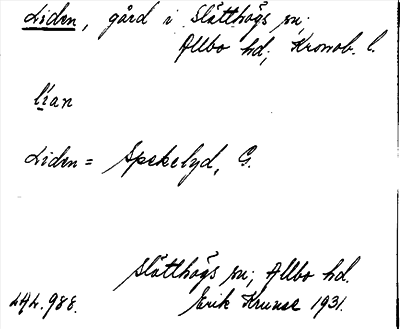 Liden, gård i Slätthögs sn;
Allbo hd; Kronob. l.
lían
Liden = Spekelyd, G.
Slätthögs sn; Allbo hd.
LAL. 988. Erik Kruuse 1931.